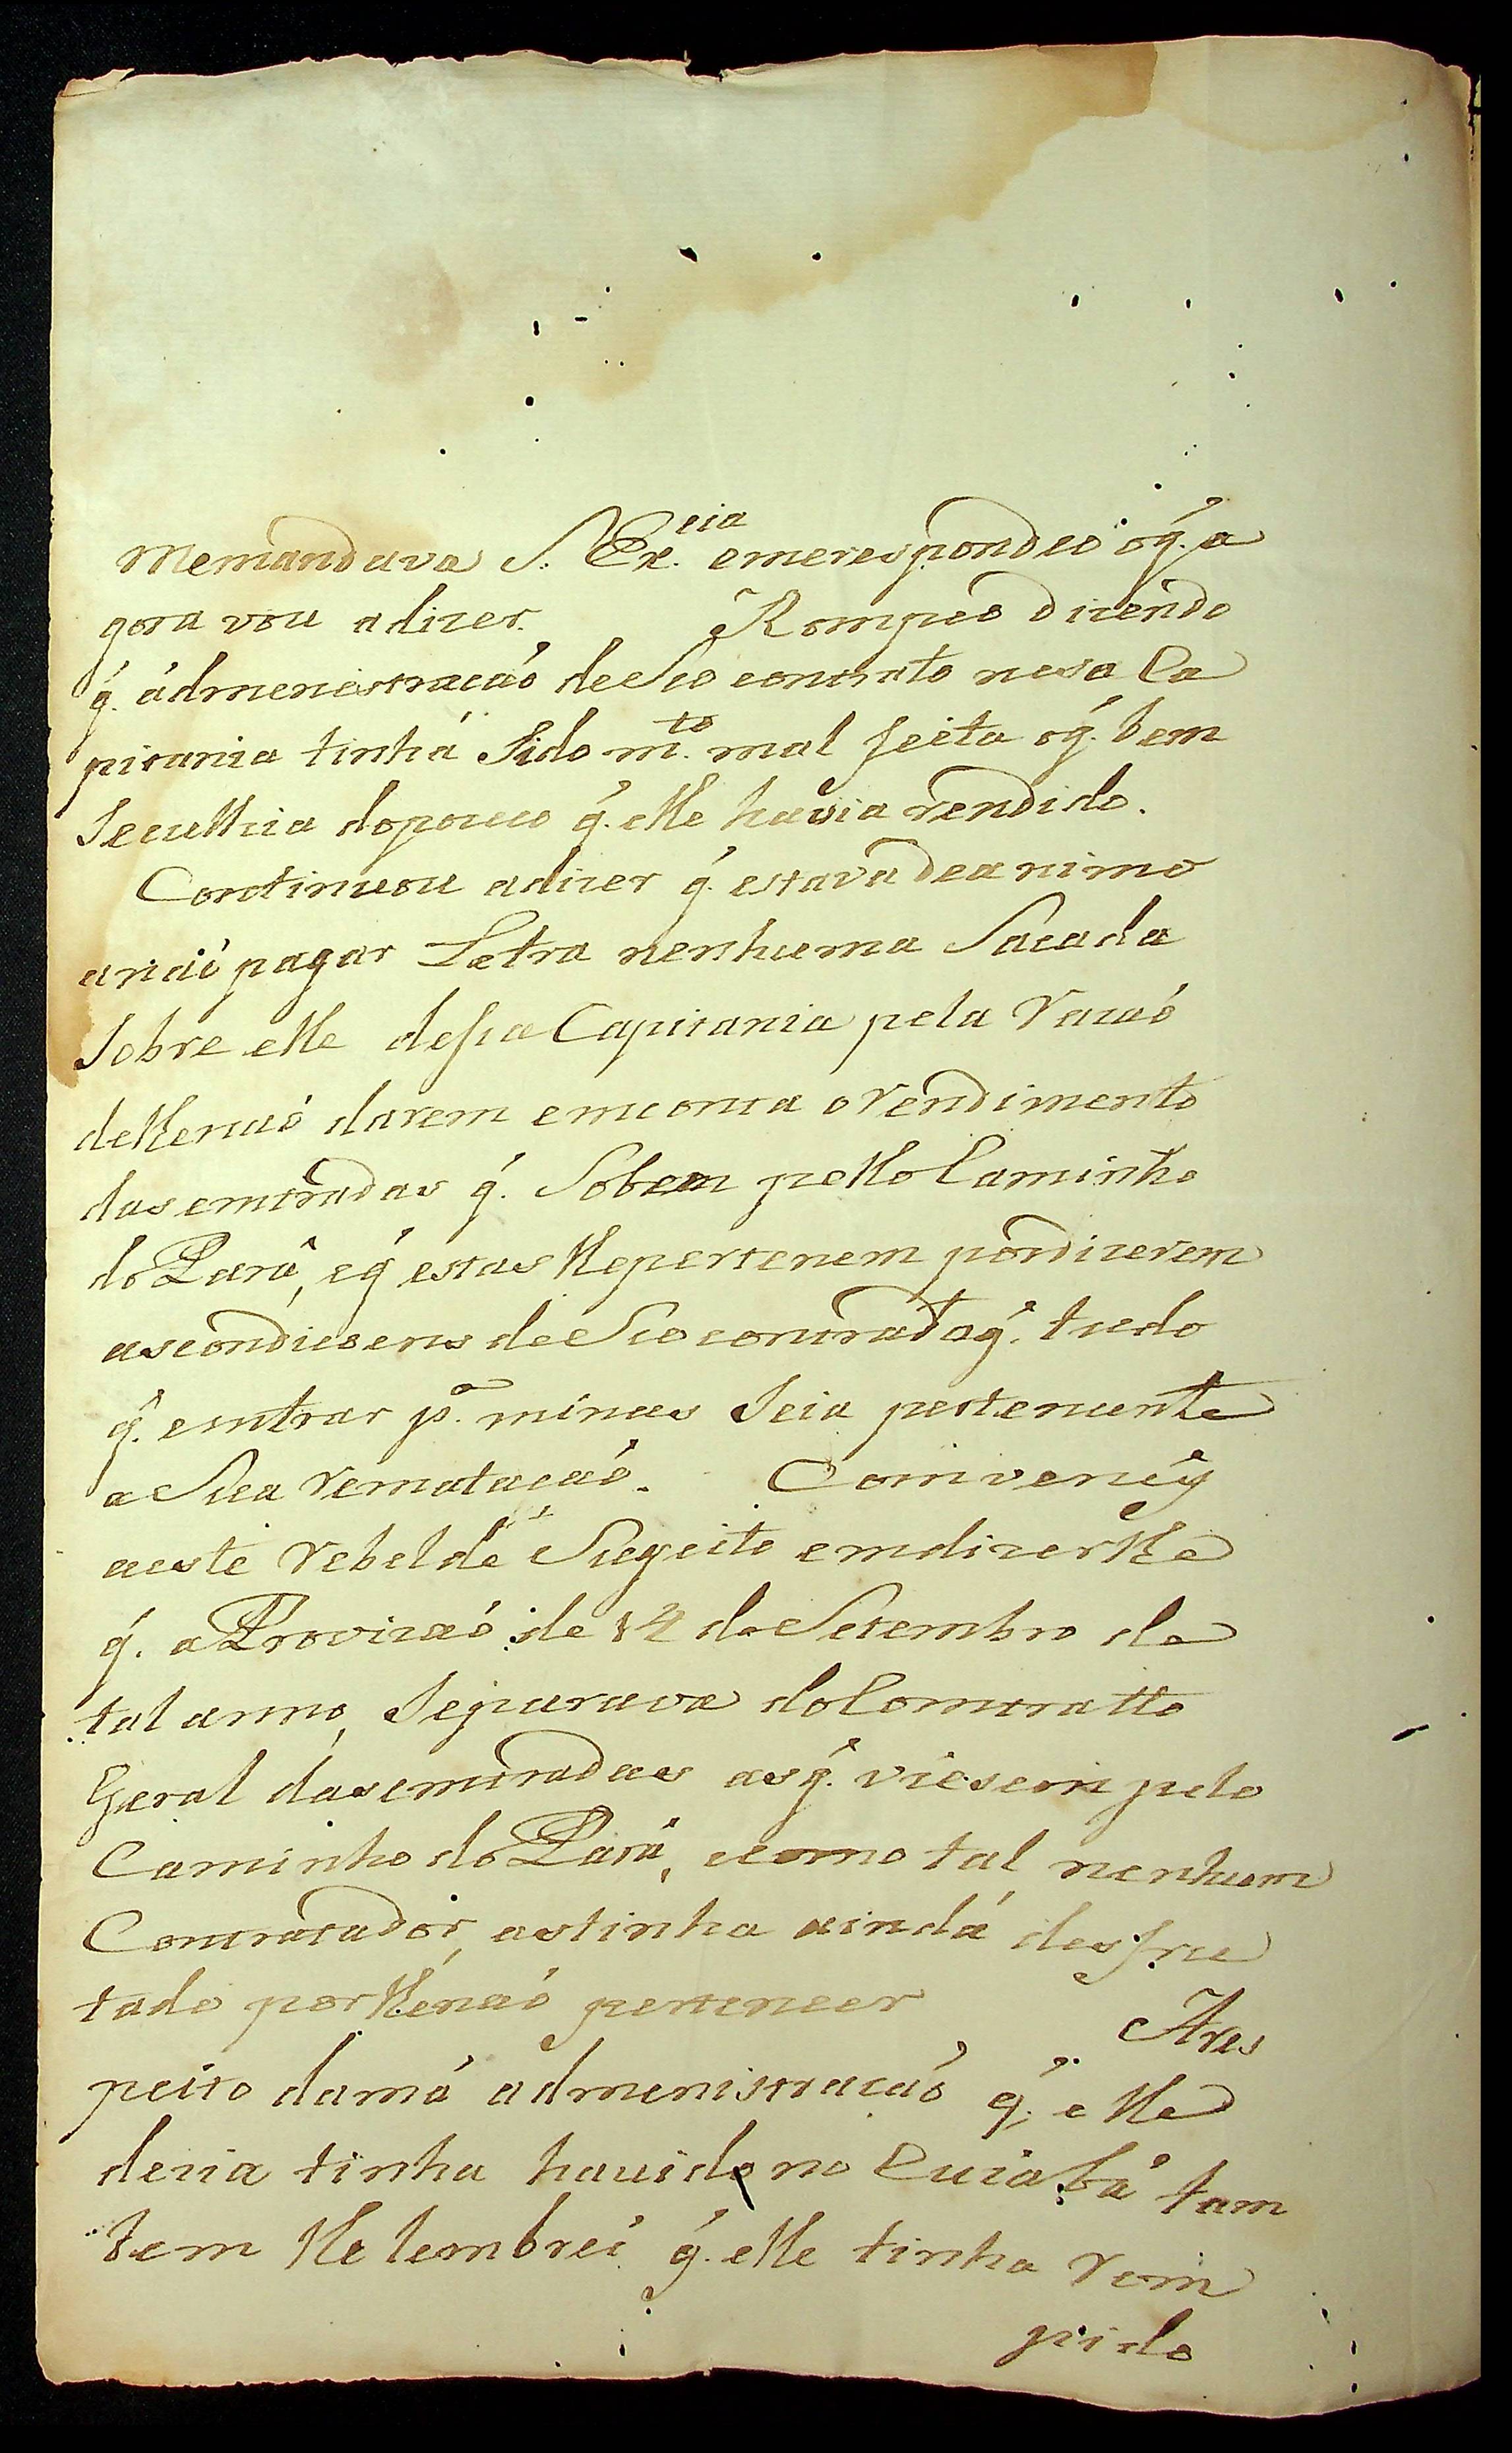 Memandava S. Ex.cia emerespondeo oq̃. a
gora vou adizer. Rompeo dizendo
q̃. ádmenistracaó deSeo contrato nesa Ca
pitania tinhá Sido m.to mal feita oq̃. bem
Seculhia dopouco q̃. elle havia rendido.
Continuou adizer q̃. estava deanimo
anaó pagar Letra nenhuma Sacada
Sobre elle desa Capitania pela razaó
delhenaó darem emconta orendimento
das emtradas q̃. Sobem pello Caminho
do Parâ, eq̃ estas lhepertenem pordizerem
ascondicoens deSeo contrato q̃. tudo
q̃. emtrar p.a minas Seia pertencente
a Sua rematacaó. Comvency
aeste rebelde Sugeito emdizerlhe
q̃. aProvizaó de 14 de Setembro de
tal anno, Separava doComtratto
Geral dasemtradas asq̃. viesem pelo
Caminho do Parâ, ecomo tal nenhum
Comtratador, astinha aindá desfru
tado porlhenaó pertencer
Ares
peito damá admenistracaó q̃. elle
dezia tinha havido no Cuiabá tam
bem lhe lembrei q̃. elle tinha rom
pido